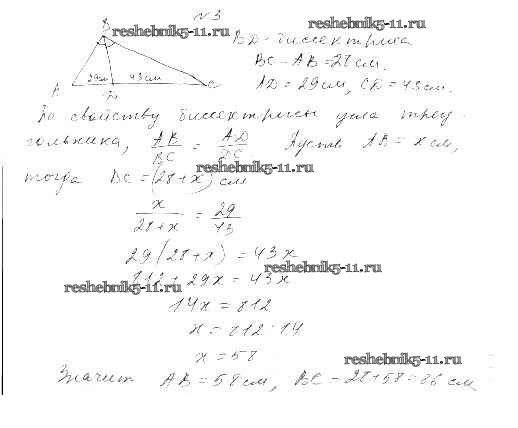 N 3
reshebnik5-11.ru
reshebnik5-11.ru
B
BD - биссектриса
BC - AB = 28 см.
A 29см 43см C
D
AD = 29 см, CD = 43 см.
По свойству биссектрисы угла треу-
гольника, AB/BC = AD/DC Пусть AB = x см,
reshebnik5-11.ru
тогда BC = (28 + x) см
x/28+x = 29/43
29(28+x) = 43x
reshebnik5-11.ru
812 + 29x = 43x
reshebnik5-11.ru
14x = 812
x = 812 : 14
x = 58
reshebnik5-11.ru
Значит AB = 58 см, BC = 28+58 = 86 см